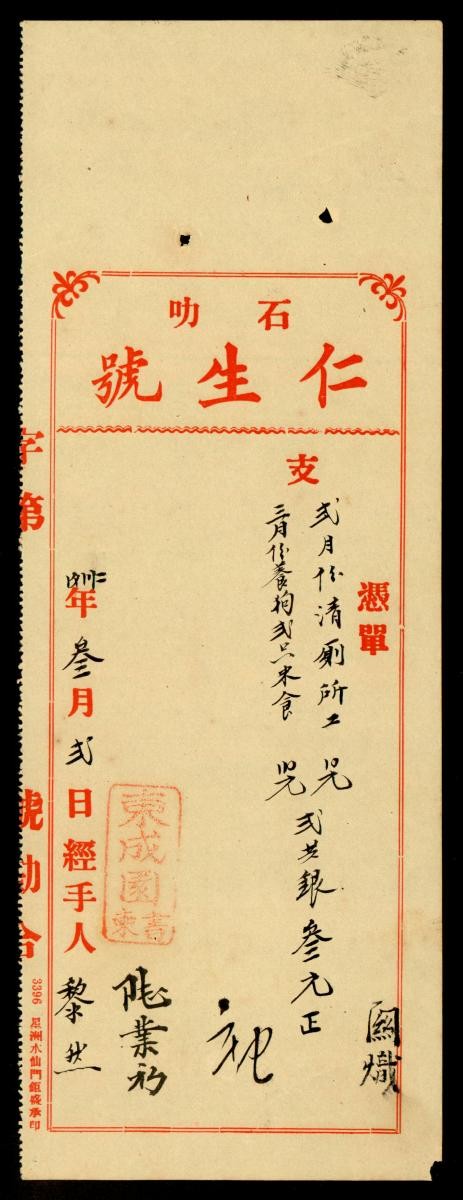 石叻
仁生號
支
憑單
弍月份清厠所工
三月份養狗弍只米食
弍共銀叁元正
年叁月弍日經手人黎然
東成園
書柬
字第
號勘合
3396 星洲水仙門鉅盛承印